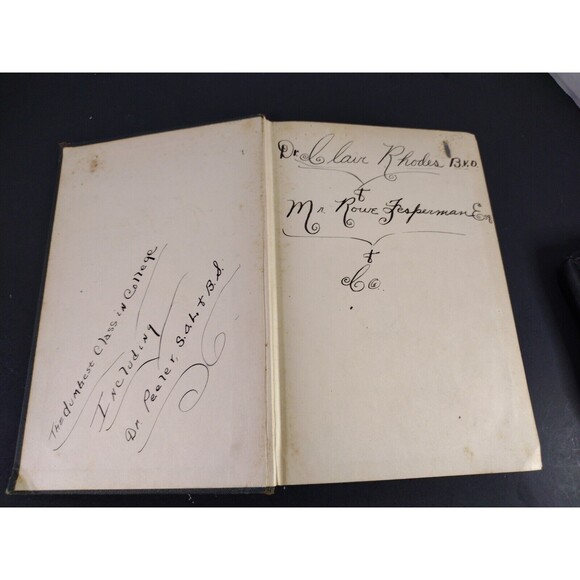 The dumbest Class in College
Including
Dr. Peeler, S.a.L, & B.S.
Dr. Clair Rhodes B.V.D
&
Mr. Rowe Fesperman Esq
&
Co.